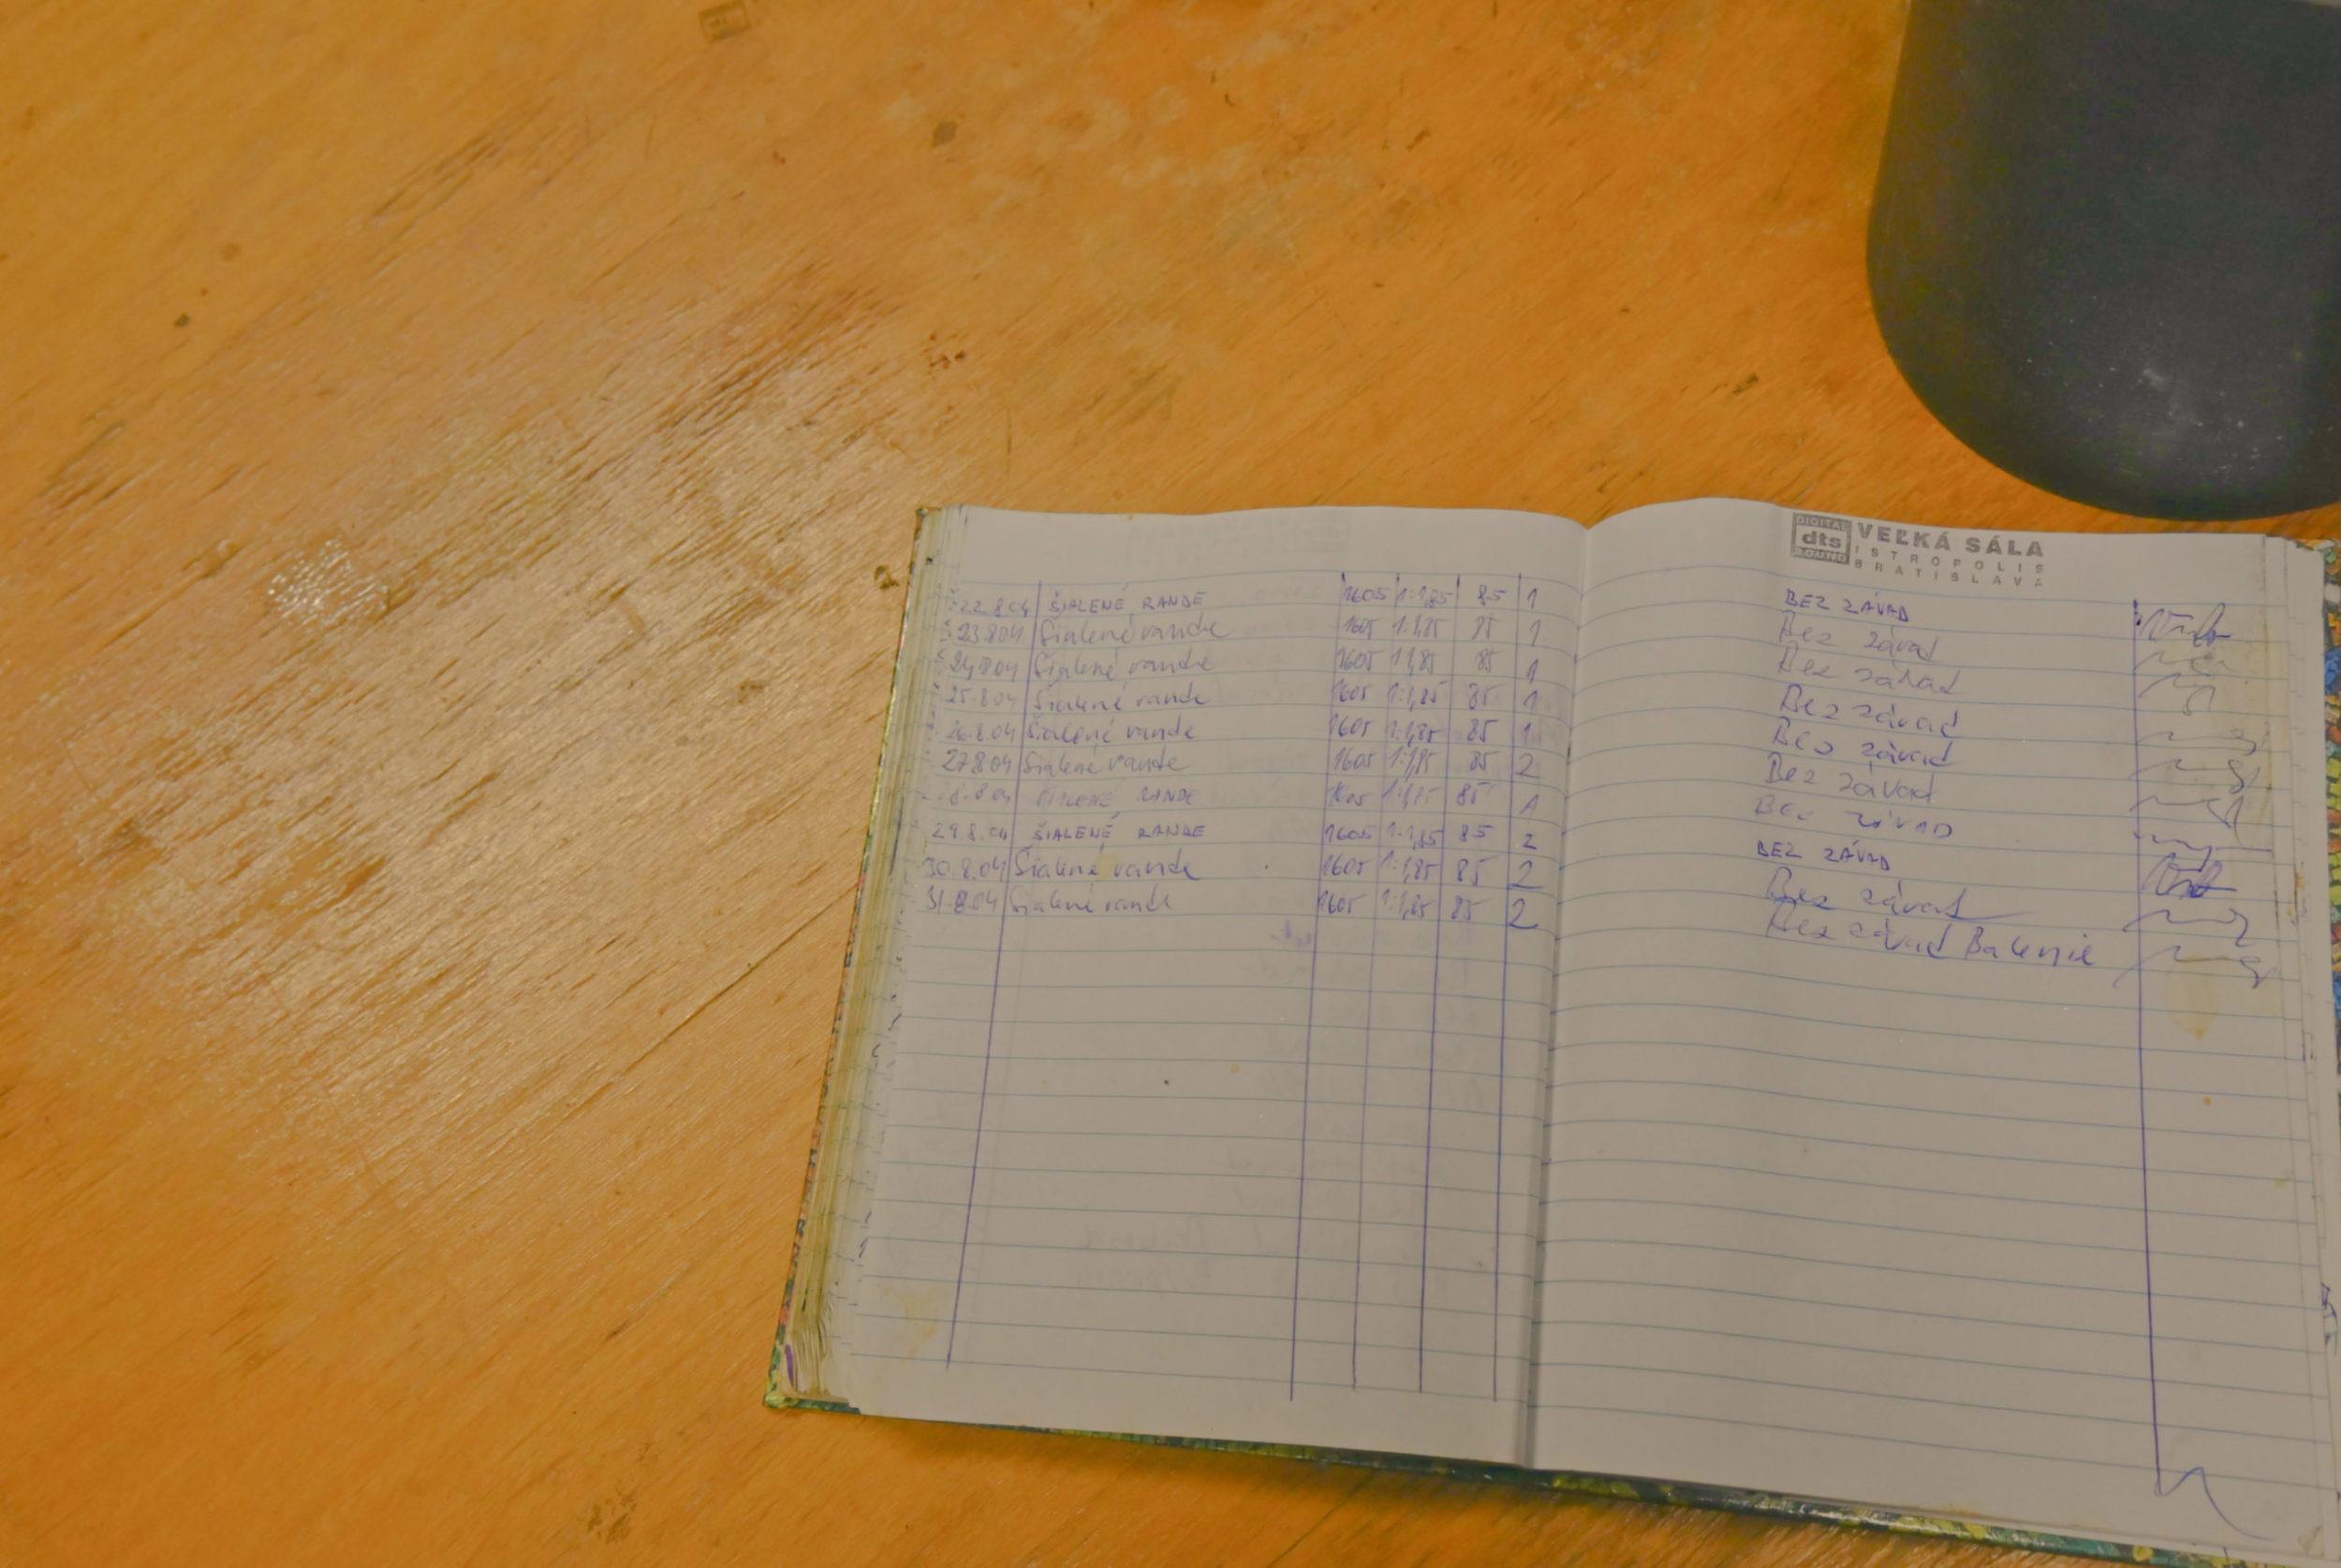 DIGITAL dts SOUND VEĽKÁ SÁLA
ISTROPOLIS
BRATISLAVA
22.8.04 ŠIALENÉ RANDE 1605 1:1,85 85 1 BEZ ZÁVAD
23.8.04 Šialené rande 1605 1:1,85 85 1 Bez závad
24.8.04 Šialené rande 1605 1:1,85 85 1 Bez závad
25.8.04 Šialené rande 1605 1:1,85 85 1 Bez závad
26.8.04 Šialené rande 1605 1:1,85 85 1 Bez závad
27.8.04 Šialené rande 1605 1:1,85 85 2 Bez závad
8.04 ŠIALENÉ RANDE 1605 1:1,85 85 1 BEZ ZÁVAD
29.8.04 ŠIALENÉ RANDE 1605 1:1,85 85 2 BEZ ZÁVAD
30.8.04 Šialené rande 1605 1:1,85 85 2 Bez závad
31.8.04 Šialené rande 1605 1:1,85 85 2 Bez závad Balenie